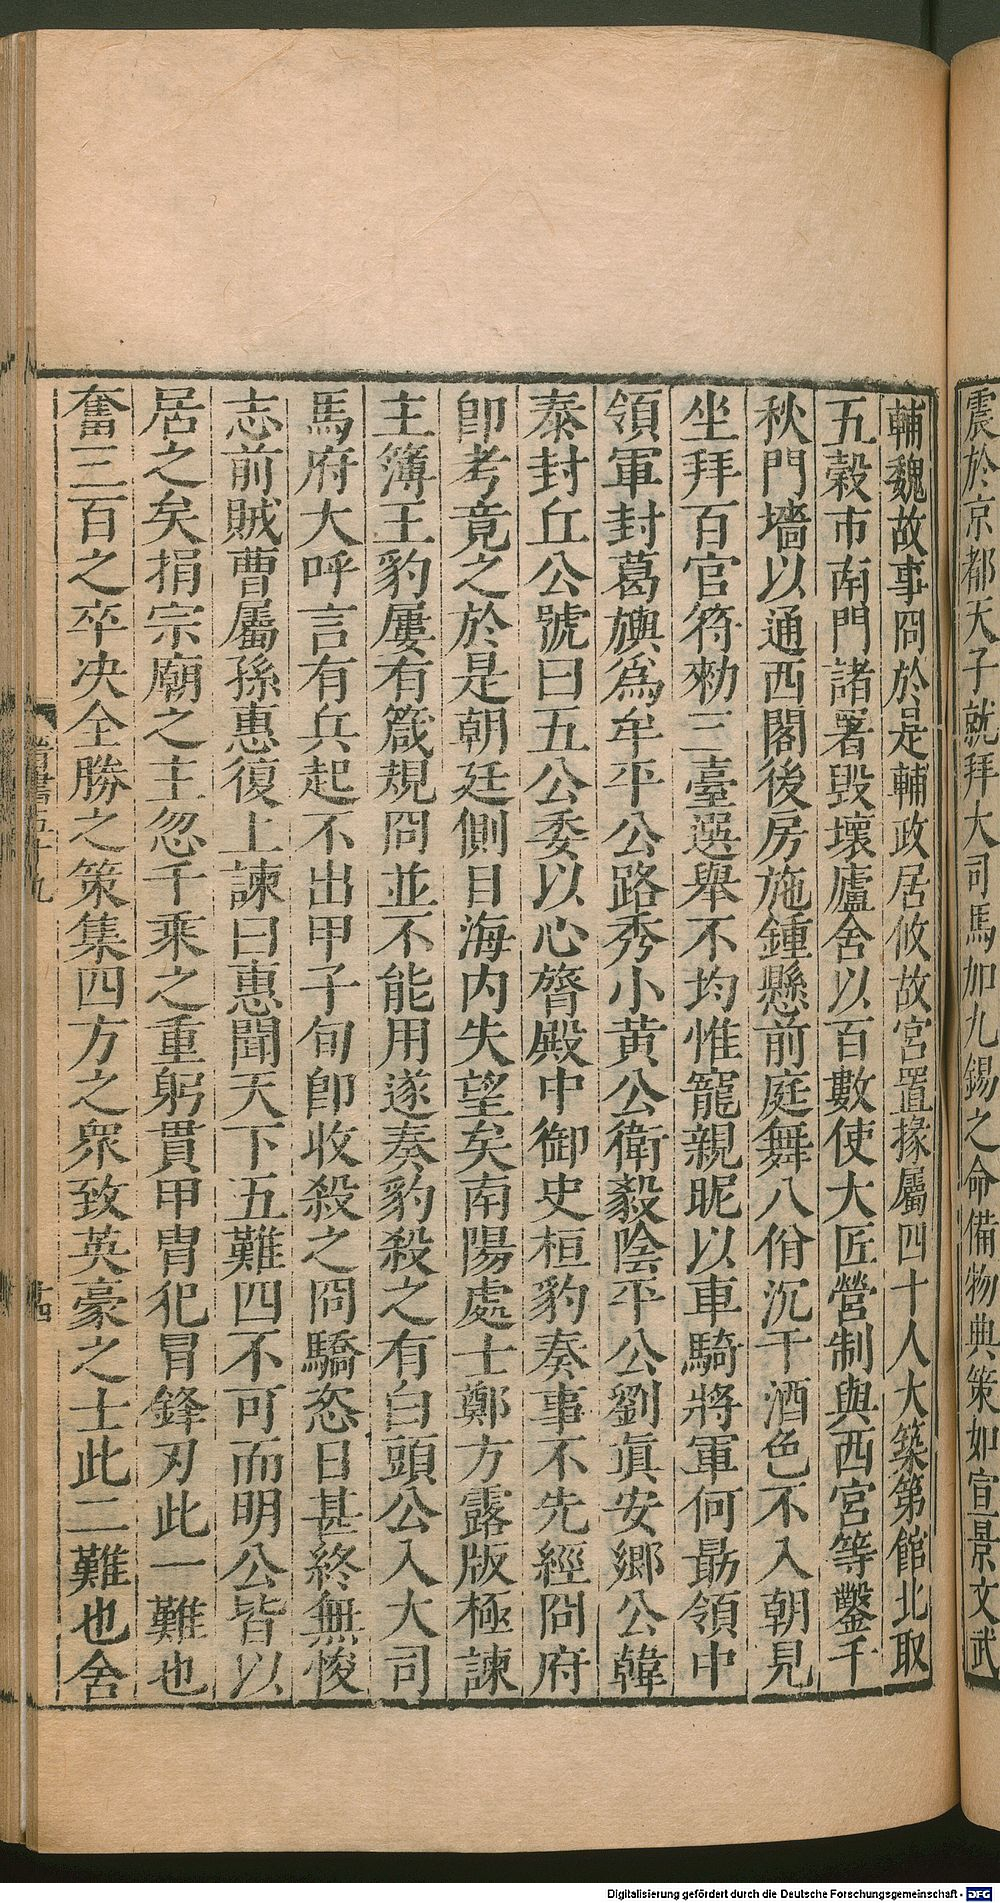 震於京都天子就拜大司馬加九錫之命備物典策如宣景文武
輔魏故事冏於是輔政居攸故宮置掾屬四十人大築第館北取
五穀市南門諸署毀壞廬舍以百數使大匠營制與西宮等鑿千
秋門墻以通西閣後房施鍾懸前庭舞八佾沉于酒色不入朝見
坐拜百官符勑三臺選舉不均惟寵親昵以車騎將軍何勗領中
領軍封葛旟爲牟平公路秀小黄公衛毅陰平公劉眞安鄉公韓
泰封丘公號曰五公委以心膂殿中御史桓豹奏事不先經冏府
即考竟之於是朝廷側目海内失望矣南陽處士鄭方露版極諫
主簿王豹屢有箴規冏並不能用遂奏豹殺之有白頭公入大司
馬府大呼言有兵起不出甲子旬即收殺之冏驕恣日甚終無悛
志前賊曹屬孫惠復上諫曰惠聞天下五難四不可而明公皆以
居之矣捐宗廟之主忽千乘之重躬貫甲胄犯冒鋒刃此一難也
奮三百之卒决全勝之策集四方之衆致英豪之士此二難也舍
晉書五十九
十四
Digitalisierung gefördert durch die Deutsche Forschungsgemeinschaft - DFG